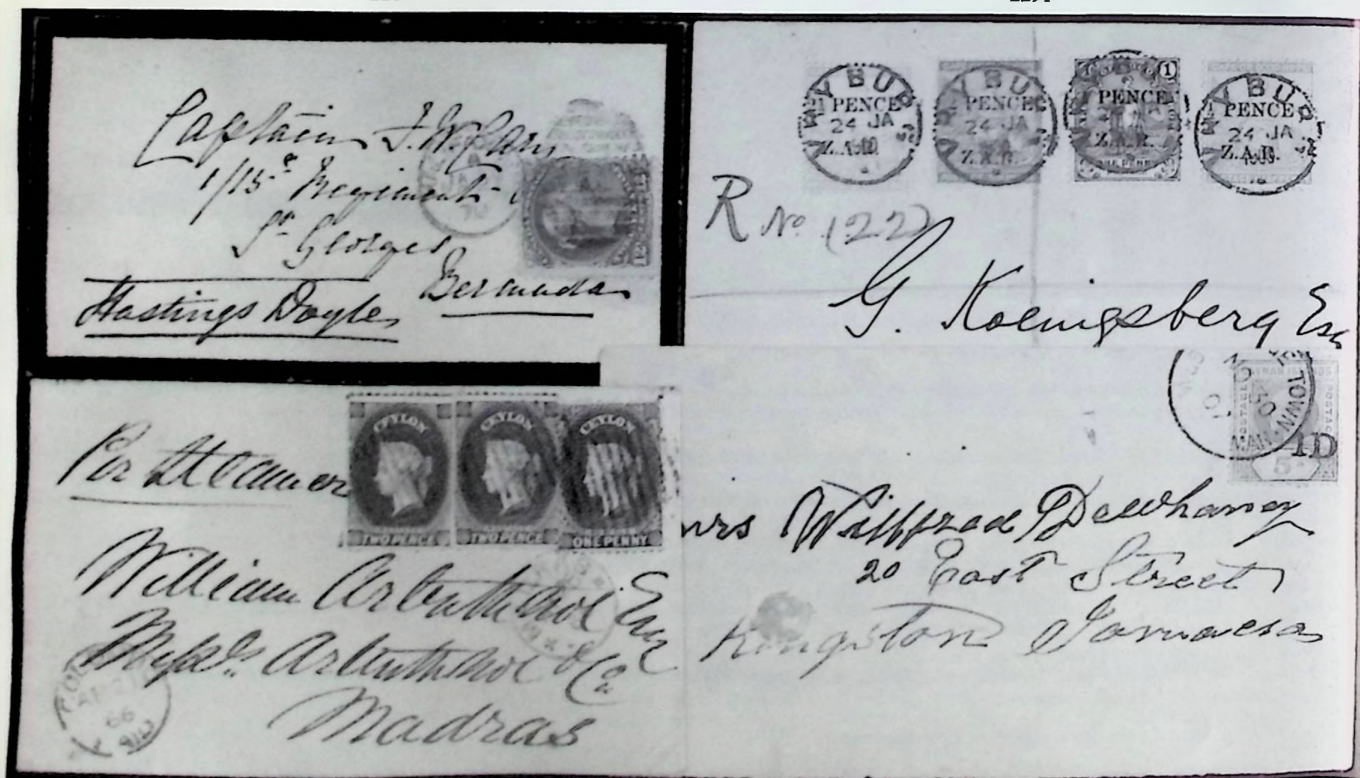 Captain J. W. Cary
1/15th Regiment
St Georges
Bermuda
Hastings Doyle
VRYBURG
PENCE
24 JA
Z.A.R.
VRYBURG
PENCE
24 JA
Z.A.R.
1
1 PENCE
Z.A.R.
ONE PENNY
PENCE
24 JA
Z.A.R.
R No (22)
G. Koenigsberg Esq
CEYLON
TWO PENCE
CEYLON
TWO PENCE
CEYLON
ONE PENNY
Per Steamer
William Arbuthnot Esq
Messrs Arbuthnot & Co
Madras
66
TOWN
POSTAGE
1D
5
Mrs Wilfred Dewhaney
20 East Street
Kingston Jamaica